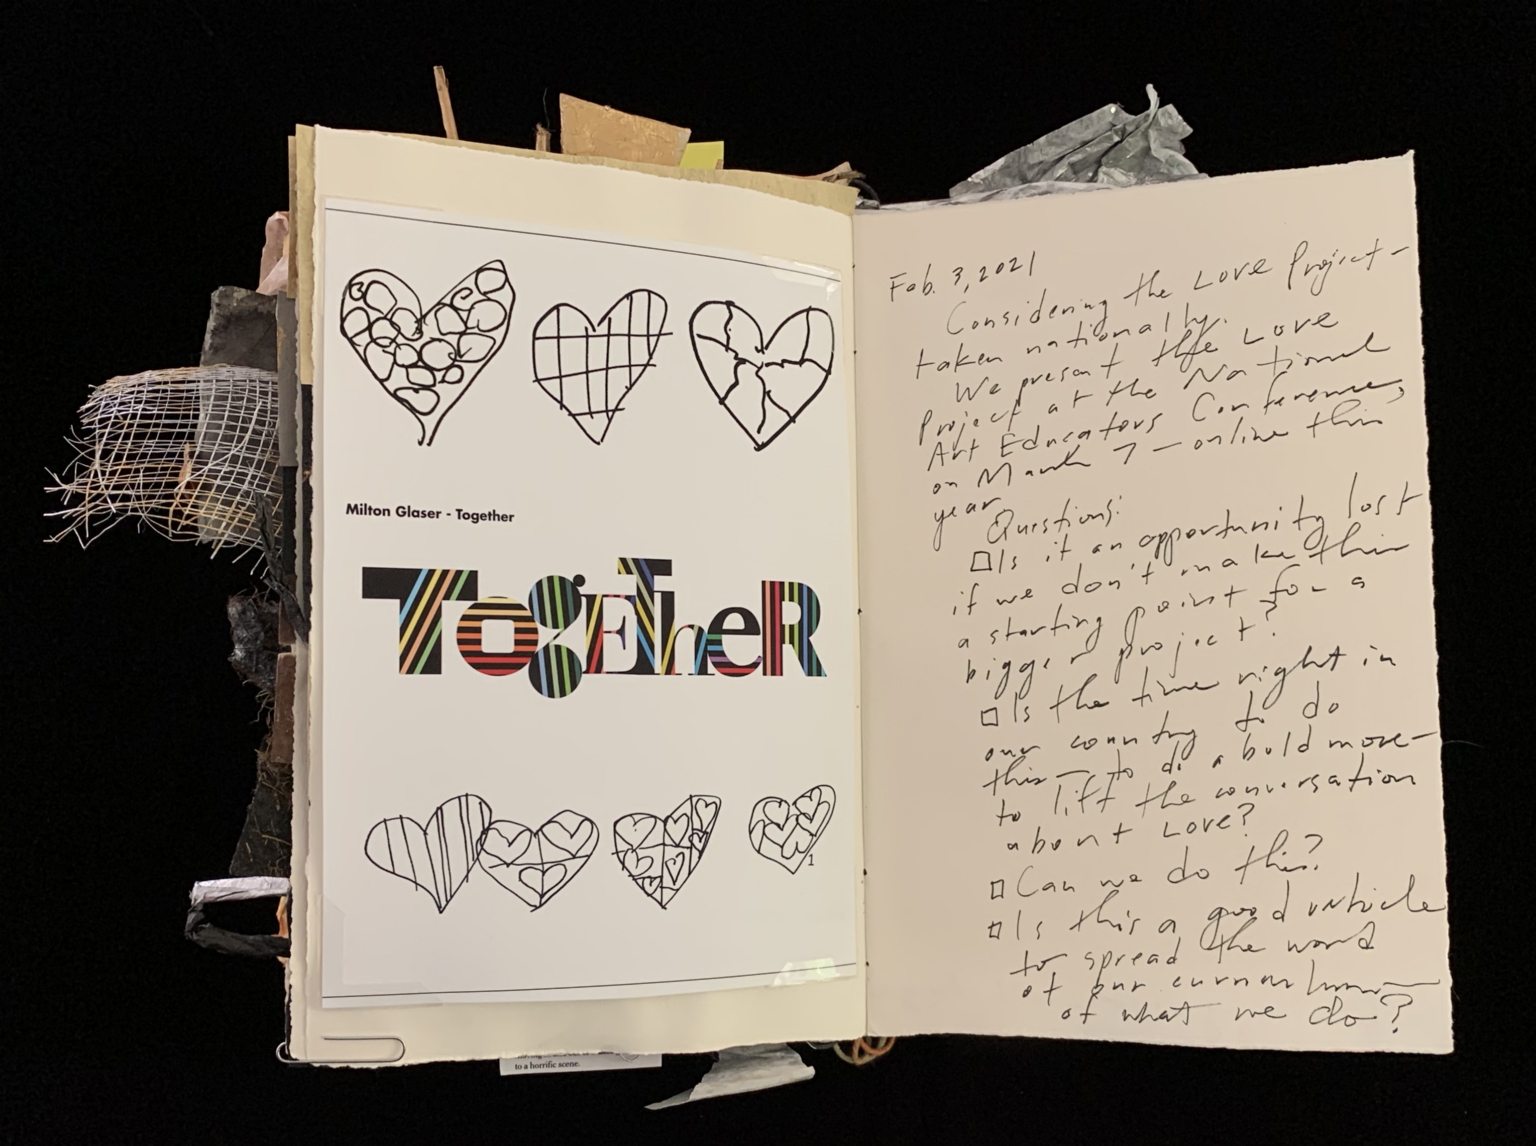 Milton Glaser - Together
TogETheR
1
to a horrific scene.
Feb. 3, 2021
Considering the Love Project -
taken nationally.
We present the Love
Project at the National
Art Educators Conference,
on March 7 - online this
year
Questions:
Is it an opportunity lost
if we don't make this
a starting point for a
bigger project?
Is the time right in
our country to do
this - to do a bold move -
to lift the conversation
about Love?
Can we do this?
Is this a good vehicle
to spread the word
of our curriculum -
of what we do?